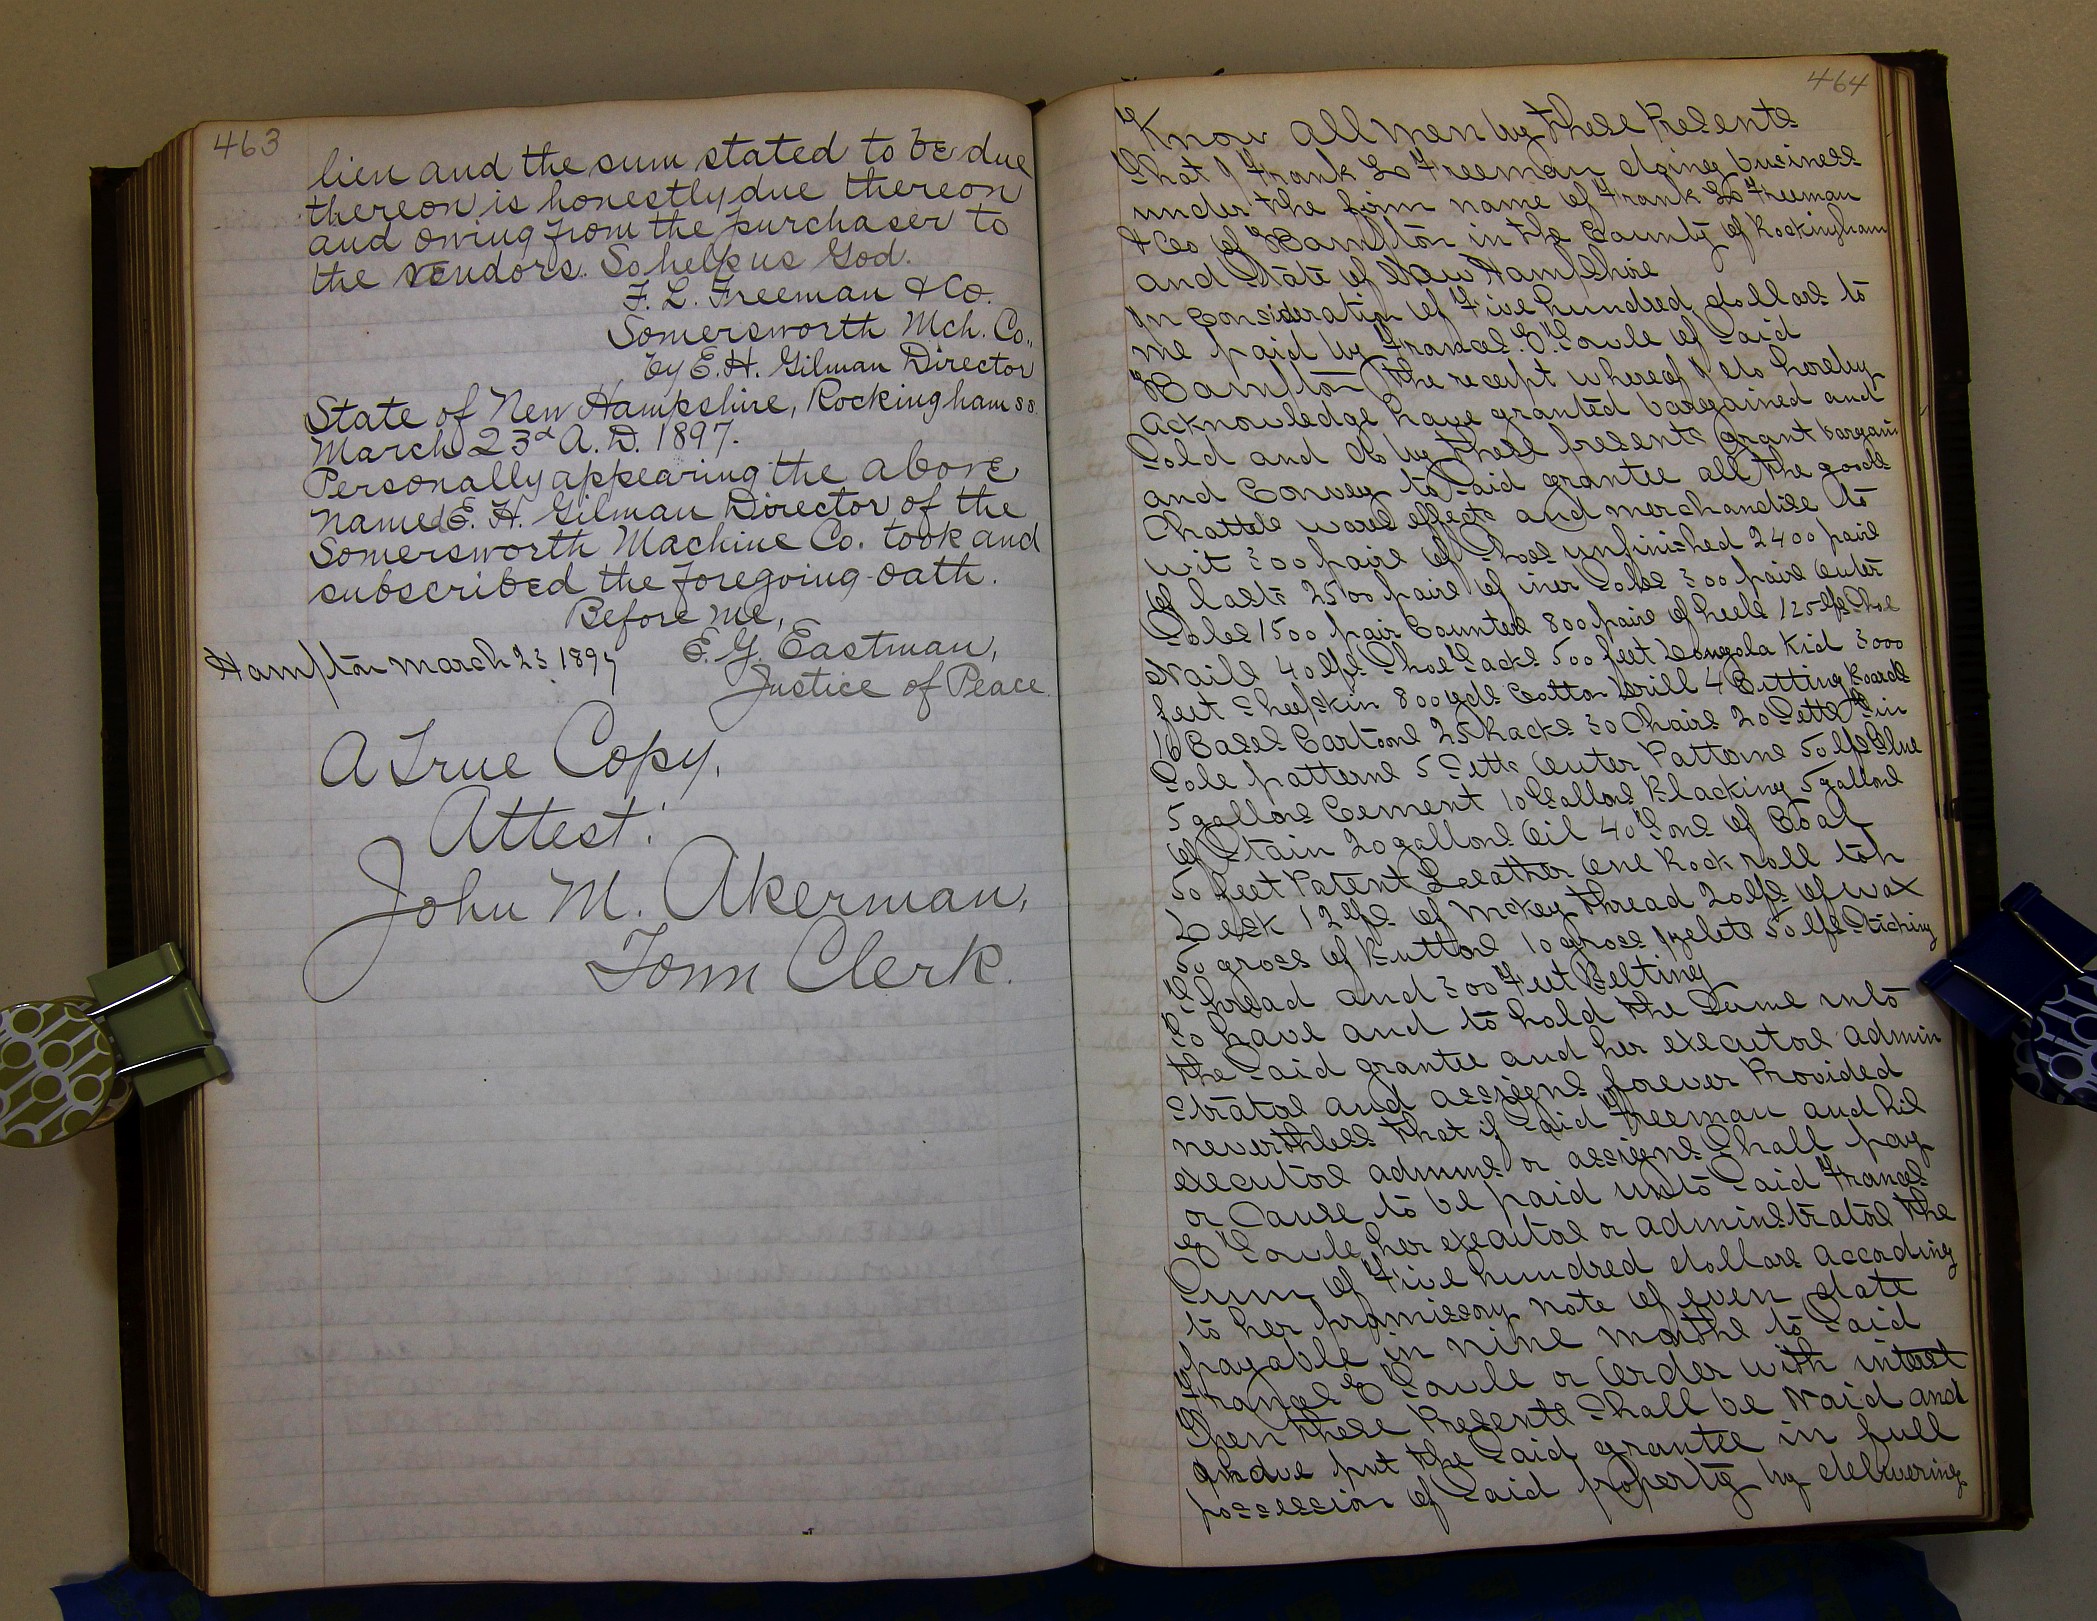 463
lien and the sum stated to be due
thereon is honestly due thereon
and owing from the purchaser to
the vendors. So help us God.
F. L. Freeman & Co.
Somersworth Mch. Co.,
by E. H. Gilman Director
State of New Hampshire, Rockingham ss.
March 23d A. D. 1897.
Personally appearing the above
named E. H. Gilman Director of the
Somersworth Machine Co. took and
subscribed the foregoing oath.
Before me,
E. G. Eastman,
Hampton march 23 1897
Justice of Peace
A True Copy,
Attest:
John M. Akerman,
Town Clerk.
464
Know all men by these Presents
that I Frank L Freeman doing business
under the firm name of Frank L Freeman
& Co of Hampton in the County of Rockingham
and State of New Hampshire
In Consideration of Five hundred dollars to
me paid by Frances E Towle of Said
Hampton the receipt whereof I do hereby
acknowledge have granted bargained and
Sold and do by these presents grant bargain
and Convey to Said grantee all the goods
Chattels wares effects and merchandise to
wit 300 pairs of Shoes unfinished 2400 pairs
of lasts 2500 pairs of iner Soles 300 pairs outer
Soles 1500 pair Counters 800 pairs of heels 125 lbs Shoe
Nails 40 lbs Shoe Tacks 500 feet Dongola Kid 3000
feet Sheepskin 800 yds Cotton Drill 4 Cutting Boards
16 Cases Cartons 25 Racks 30 Chairs 20 Setts in
Sole patterns 5 Setts outer Patterns 50 lbs Glue
5 gallons Cement 10 Gallons Blacking 5 gallons
of Stain 20 gallons Oil 40 Tons of Coal
50 feet Patent Leather one Rock roll top
Desk 12 lbs of McKey Thread 20 lbs of wax
50 gross of Buttons 10 gross Iyelets 50 lbs Stiching
Thread and 300 Feet Belting
To have and to hold the Same unto
the Said grantee and her executors admin
strators and assigns forever Provided
neverthless that if Said Freeman and his
executors admins or assigns Shall pay
or Cause to be paid unto Said Frances
E Towle her executors or administrators the
Sum of Five hundred dollars according
to her promissory note of even date
payable in nine months to Said
Frances E Towle or order with interest
Then these Presents Shall be Void and
put the Said grantee in full
possession of Said property by delivering